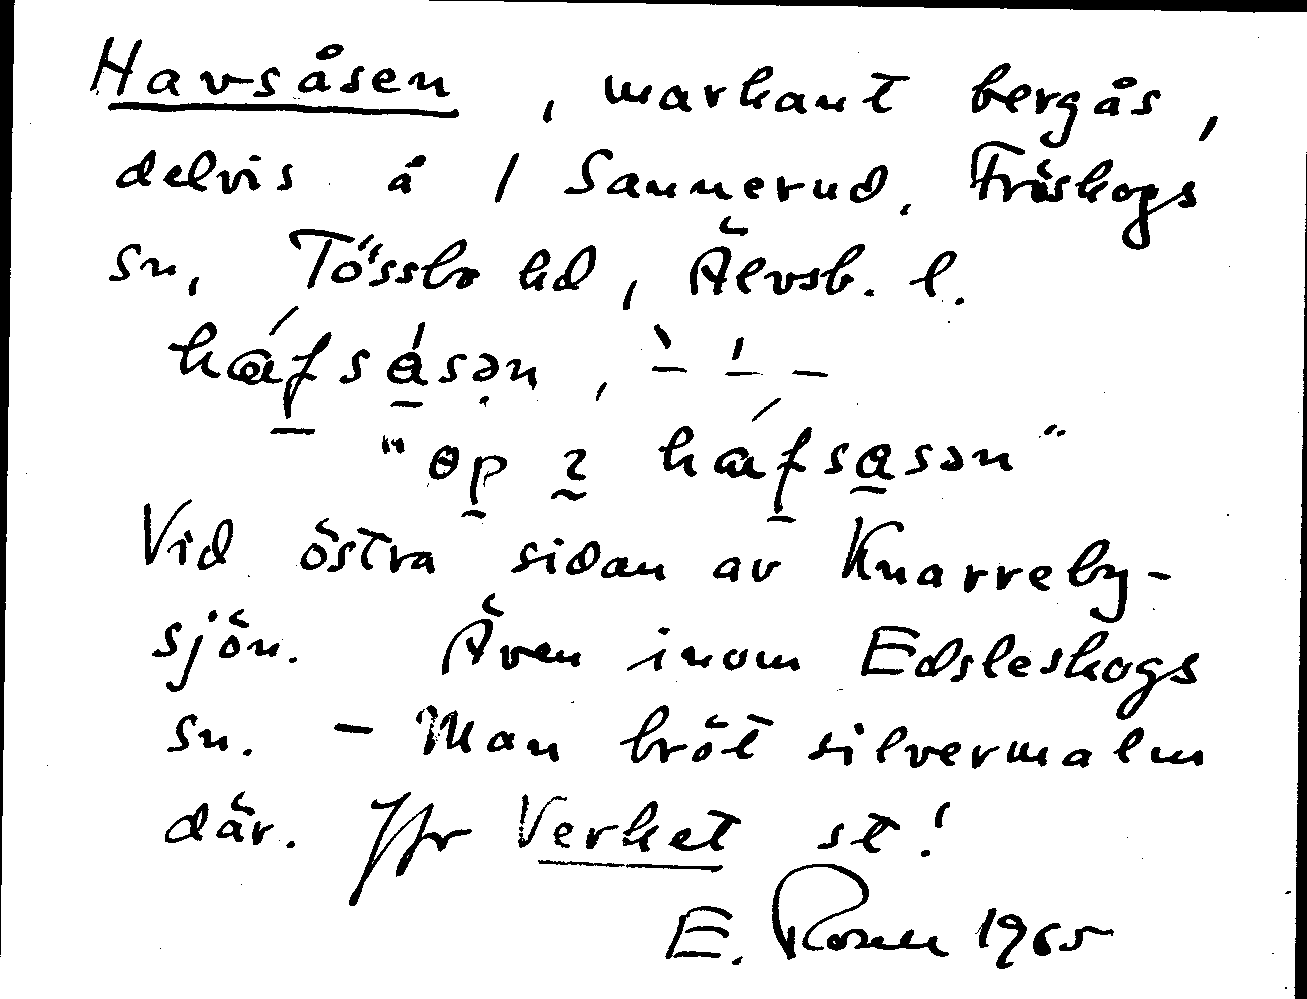 Havsåsen, markant bergås,
delvis å 1 Sannerud, Fröskogs
sn, Tössbo hd, Älvsb. l.
háfsåsən, ˋ– ˊ– –
"øp ı háfsasən"
Vid östra sidan av Knarreby-
sjön. Även inom Edsleskogs
sn. – Man bröt silvermalm
där. Jfr Verket st!
E. Rosell 1965